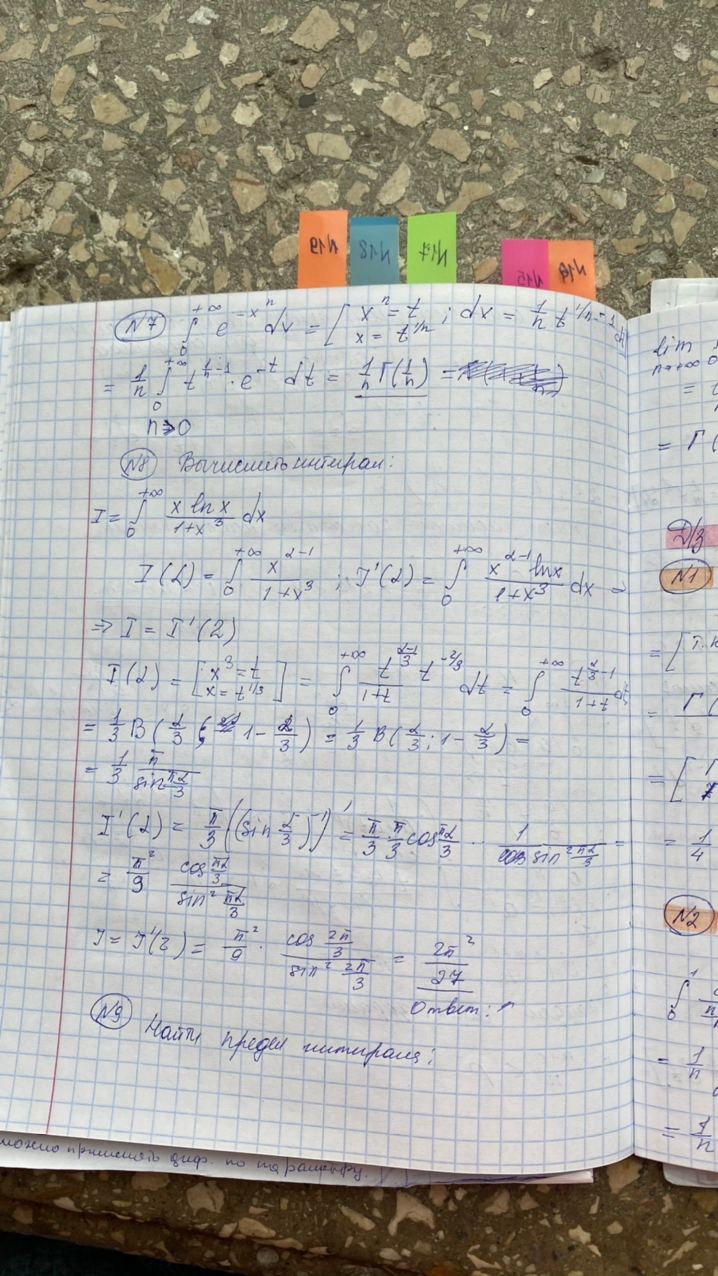 N19 N18 N17 N15 N16
N7 ∫₀^{+∞} e^{-x^n} dx = [ x^n = t ; dx = 1/n t^{1/n - 1} dt
x = t^{1/n}
= 1/n ∫₀^{+∞} t^{1/n - 1} · e^{-t} dt = 1/n Γ(1/n)
n > 0
N8 Вычислить интеграл:
I = ∫₀^{+∞} x ln x / (1+x³) dx
I(α) = ∫₀^{+∞} x^{α-1} / (1+x³) ; I'(α) = ∫₀^{+∞} x^{α-1} ln x / (1+x³) dx ⇒
⇒ I = I'(2)
I(α) = [ x³ = t x = t^{1/3} ] = ∫₀^{+∞} t^{(α-1)/3} t^{-2/3} / (1+t) dt = ∫₀^{+∞} t^{α/3 - 1} / (1+t) dt
= 1/3 B(α/3 ; 1 - α/3) = 1/3 B(α/3 ; 1 - α/3) =
= 1/3 π / sin πα/3
I'(α) = π/3 ((sin α/3)^{-1})' = π/3 · π/3 cos πα/3 · 1 / sin² πα/3 =
= π²/9 cos πα/3 / sin² πα/3
I = I'(2) = π²/9 · cos 2π/3 / sin² 2π/3 = 2π²/27
Ответ:
N9 Найти предел интеграла:
можно применять диф. по параметру.
lim
n→+∞
=
= Γ(
Д/з
N1
= [ т.к
= Γ(
= [ Γ
= 1/4
N2
∫₀¹
= 1/n